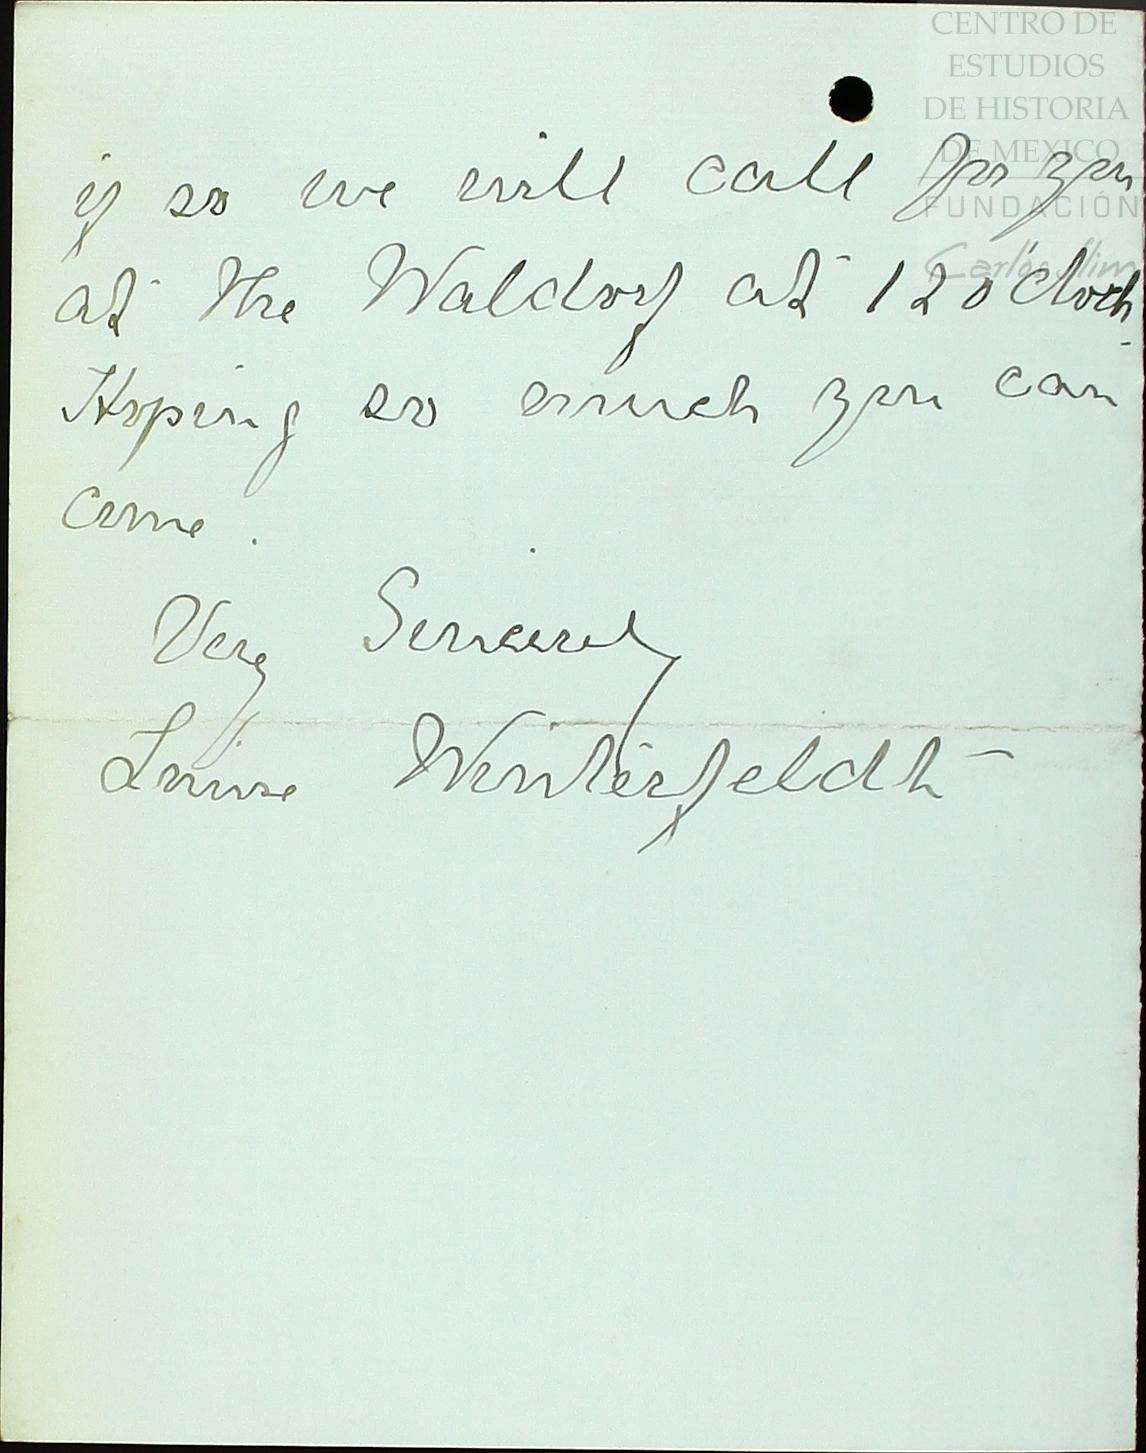 CENTRO DE
ESTUDIOS
DE HISTORIA
DE MEXICO
FUNDACIÓN
Carlos Slim
if so we will call for you
at the Waldorf at 12 o'clock.
Hoping so much you can
come.
Very Sincerely
Louise Winterfeldt